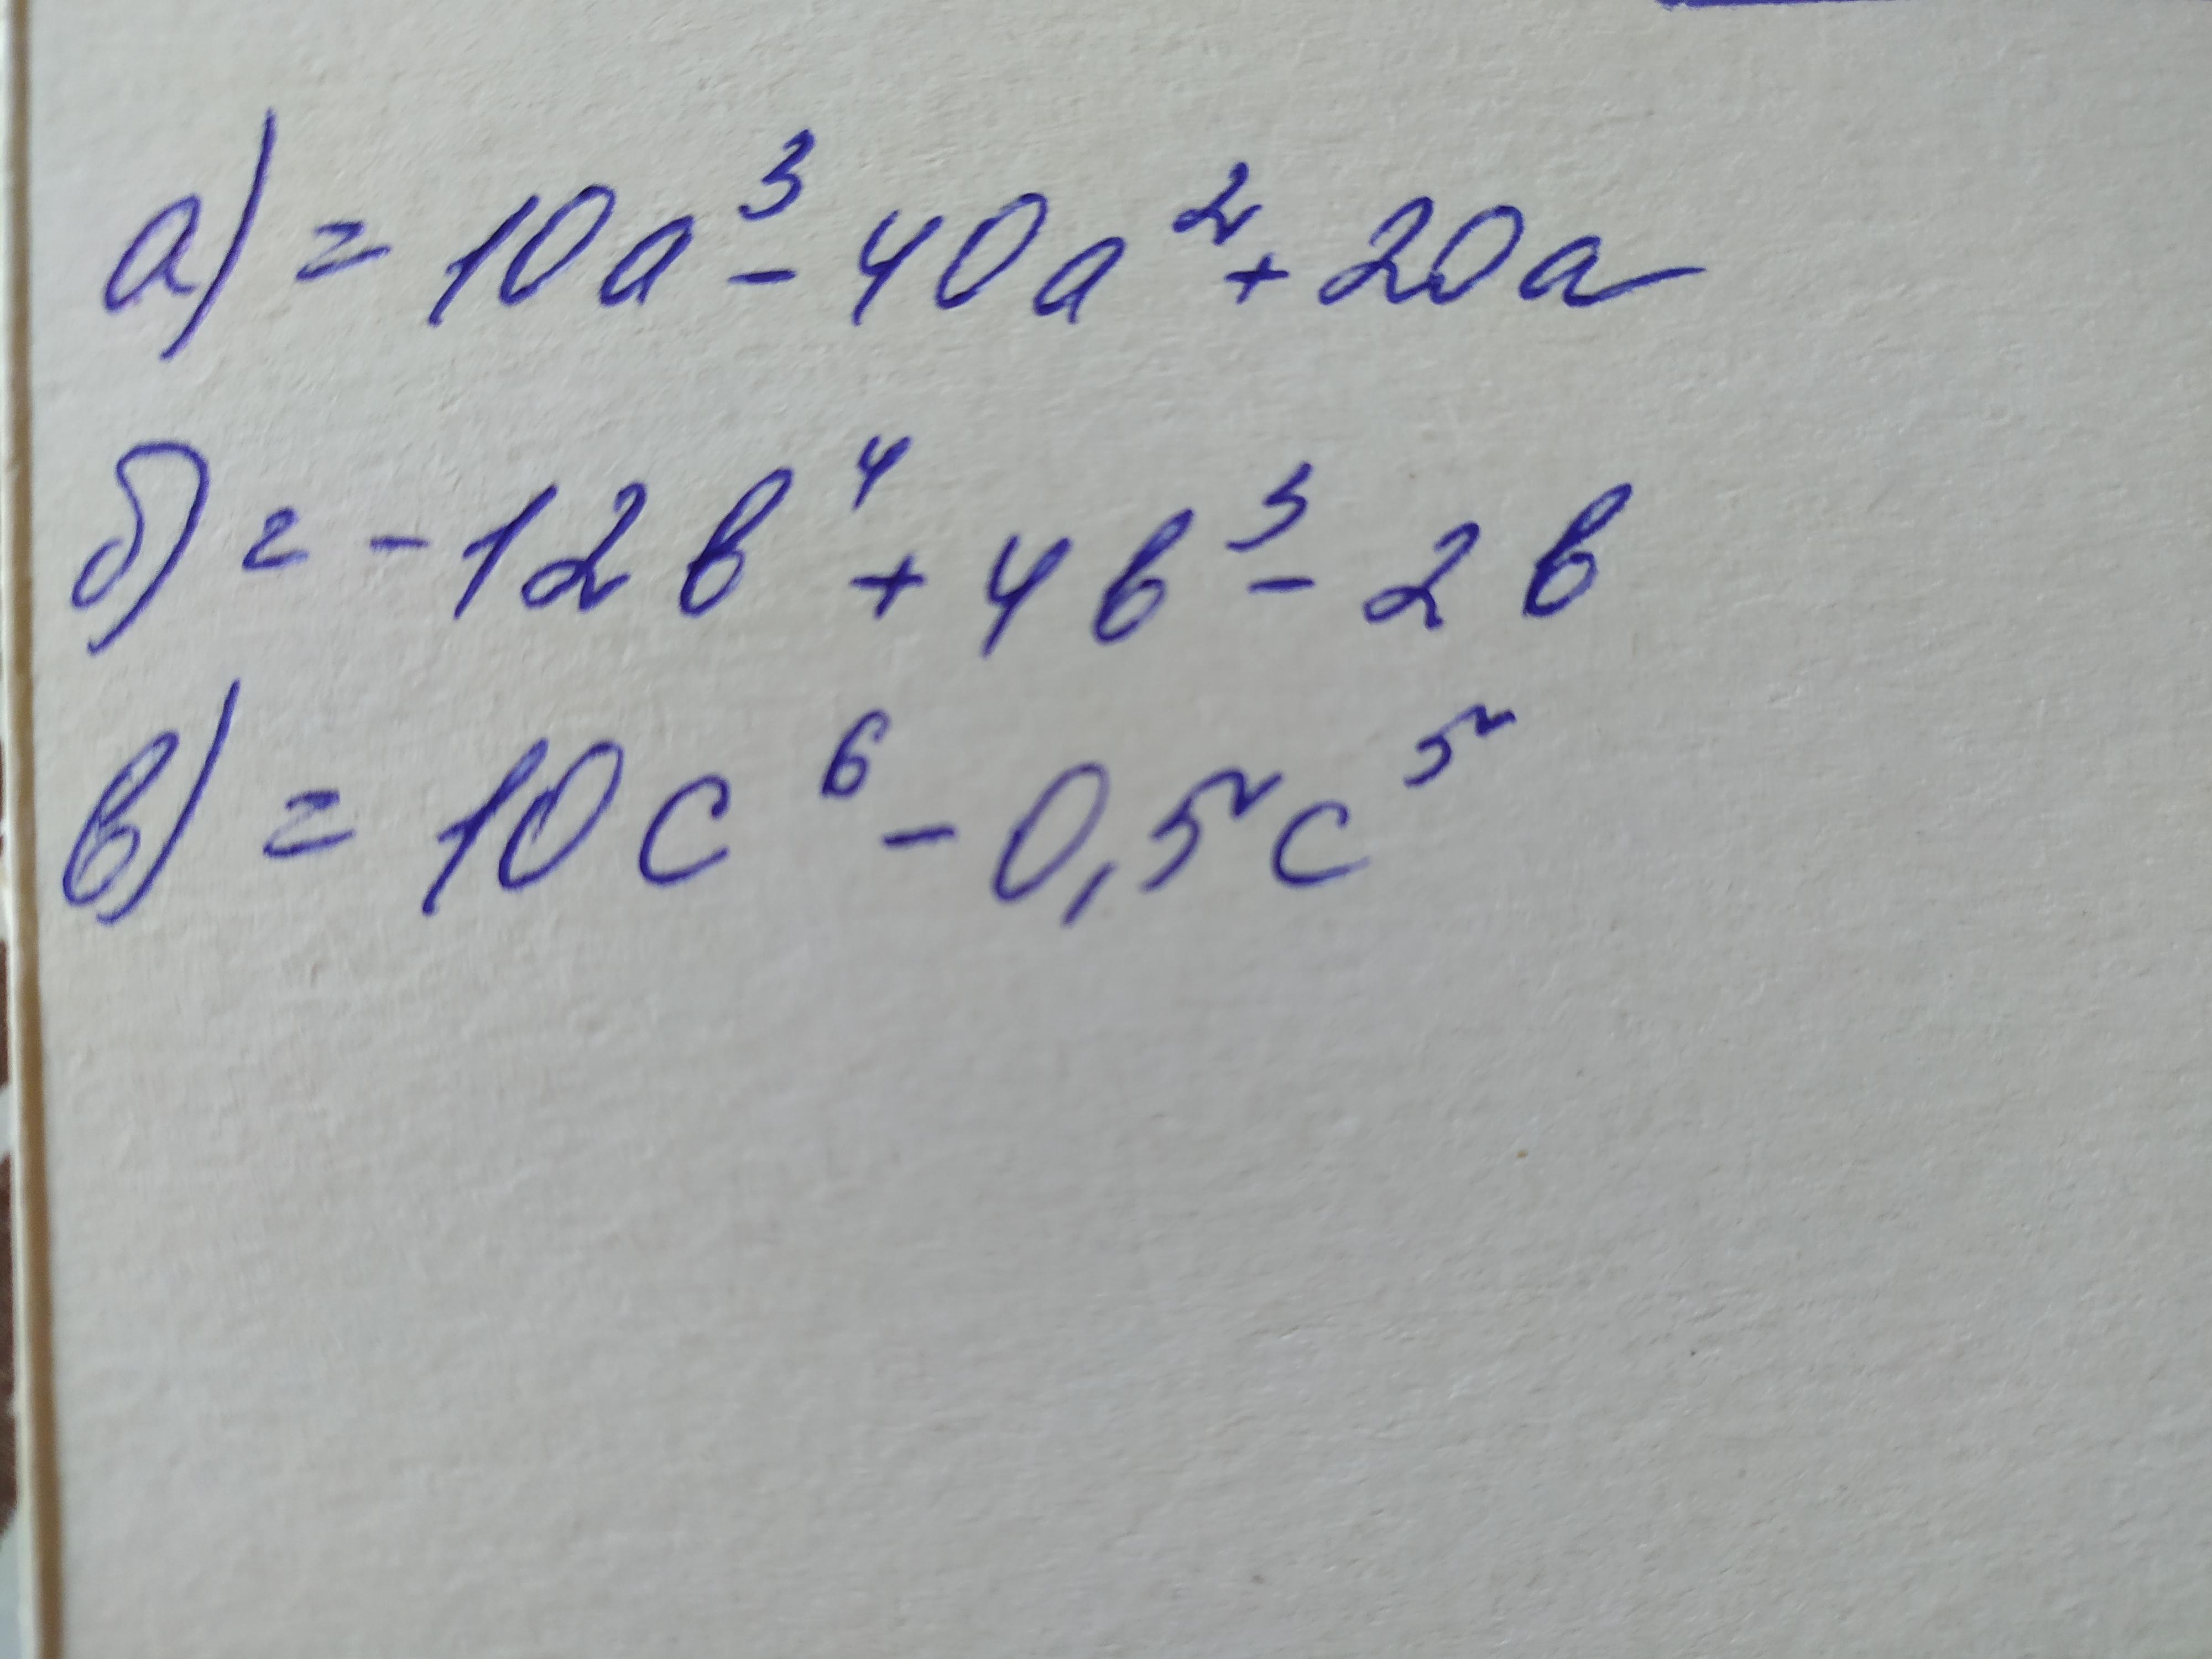 а) = 10a³ - 40a² + 20a
б) = - 12b⁴ + 4b³ - 2b
в) = 10c⁶ - 0,5c⁵